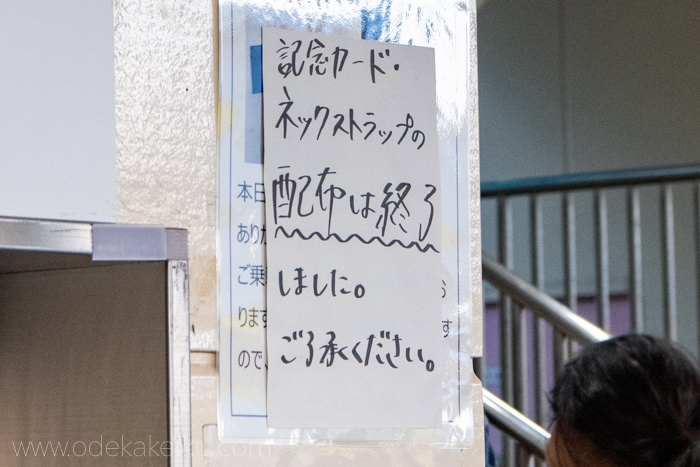 記念カード・
ネックストラップの
配布は終了
しました。
ご了承ください。
本日
あり
ご乗
ります
ので、
す
www.odekake